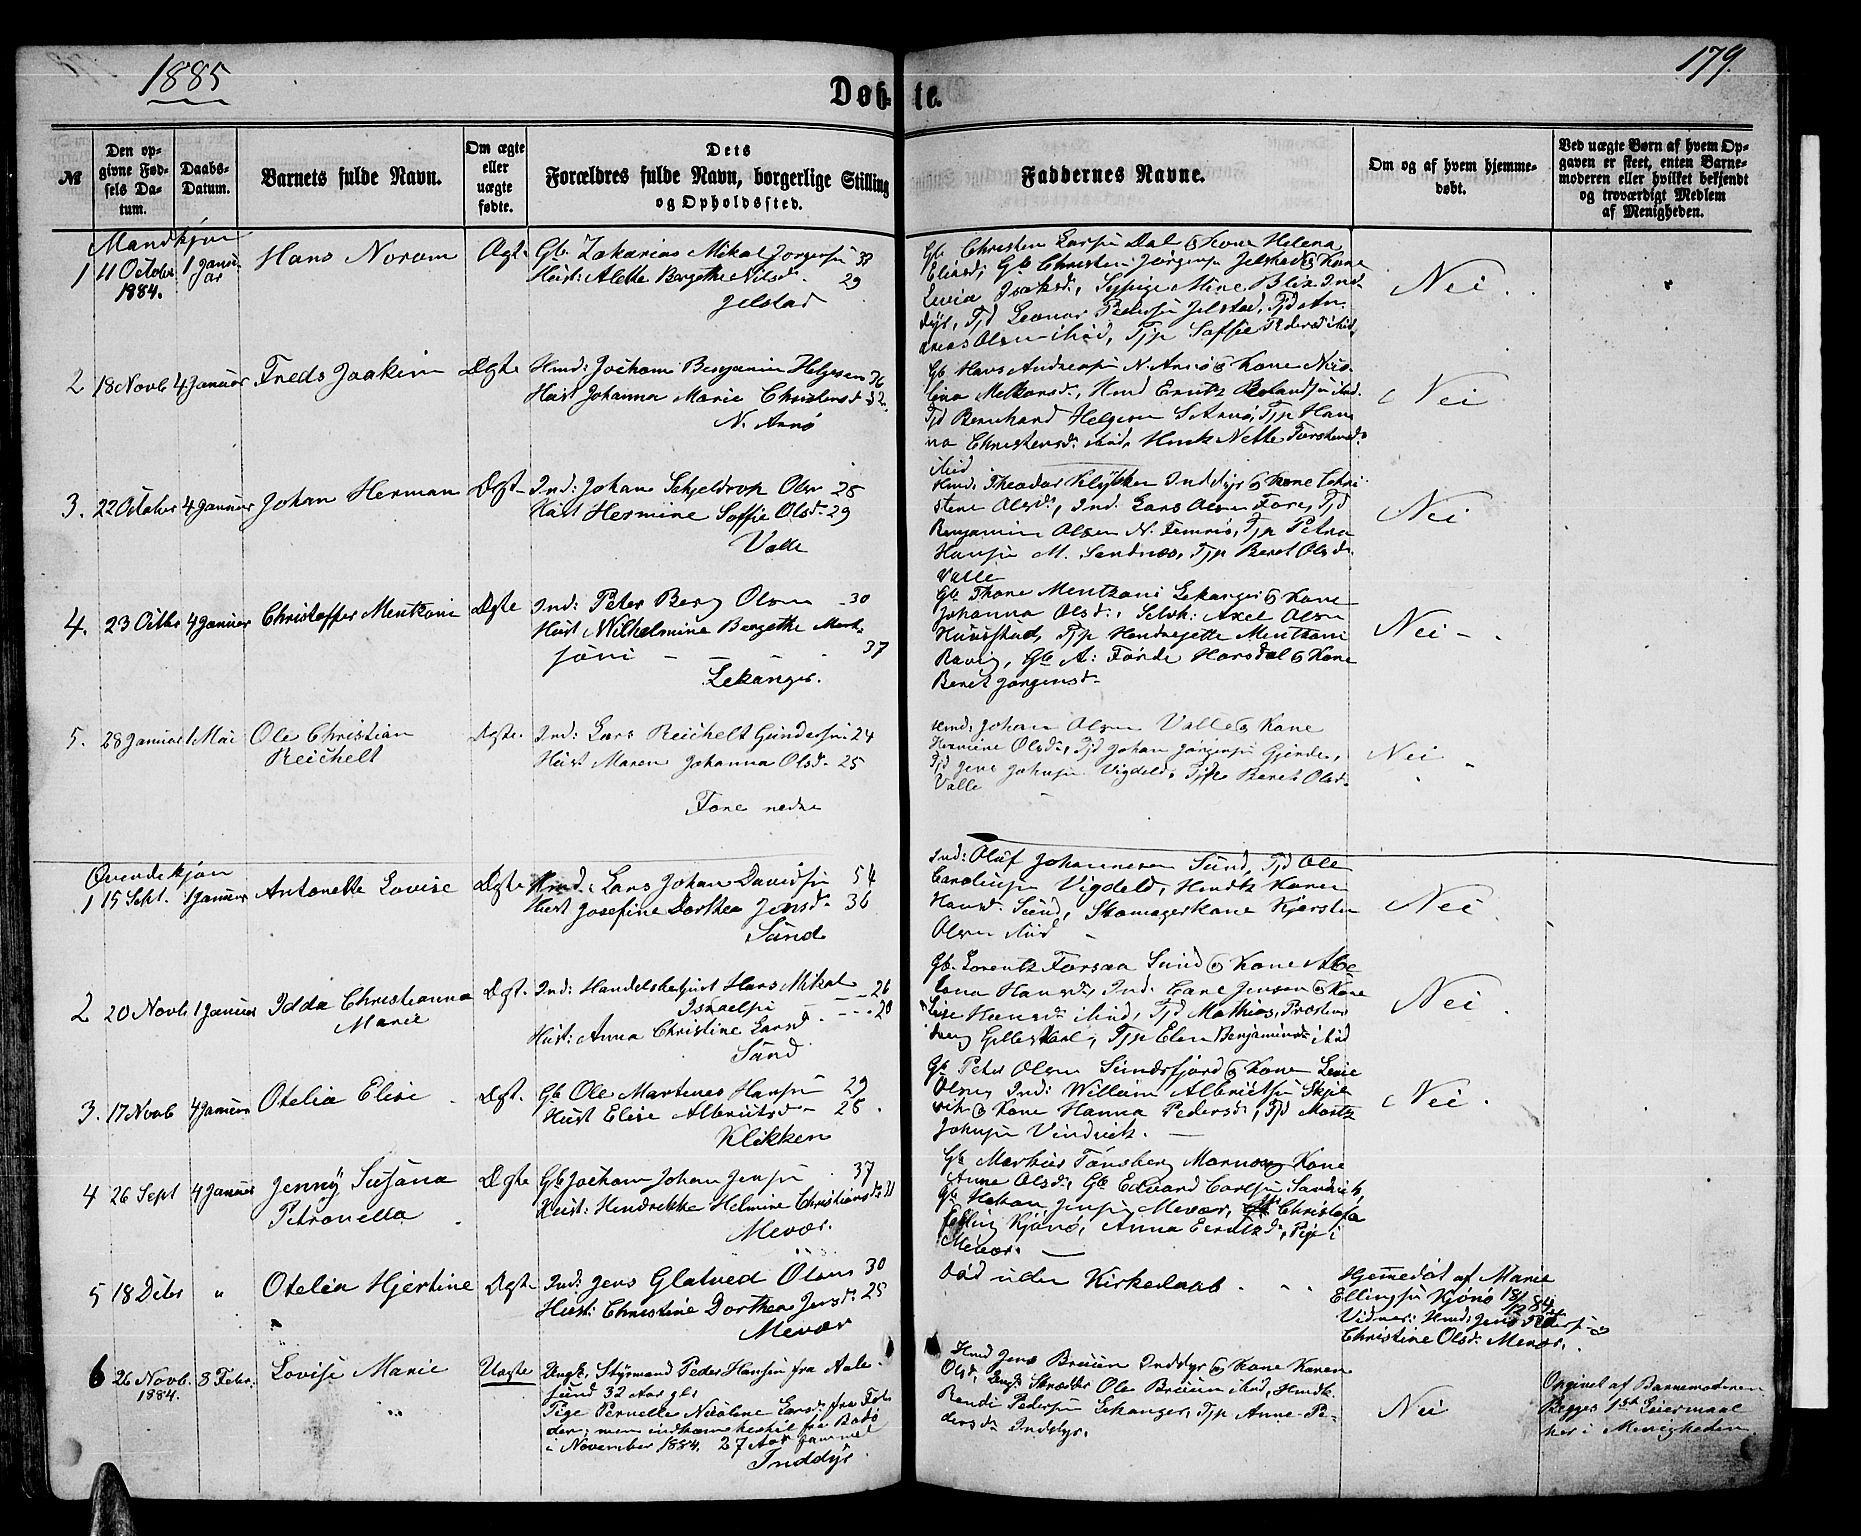 1885
179.
Døbte.
№
Den opgivne Fødsels Datum.
Daabs-Datum.
Barnets fulde Navn.
Om ægte eller uægte fødte.
Dets Forældres fulde Navn, borgerlige Stilling og Opholdssted.
Faddernes Navne.
Om og af hvem hjemmedøbt.
Ved uægte Børn af hvem Opgaven er skeet, enten Barnemoderen eller hvilket bekjendt og troværdigt Medlem af Menigheden.
Mandkjøn
1 11 October 1884. 1 Januar Hans Norom Ægt.
Gb Zakarias Mikal Jørgensen 38
Hust: Alette Bergitte Nilsd. 29
Jelstad
Gb Christen Larsen Dal & Kone Helena
Eliasd; Gb Christen Jørgensen Jelstad & Kone
Isaksd,
dyr, Tjd Leonar Pedersen Jelstad, Tjd An-
dreas Olsen ibid, Tjp Soffie Pedersd ibid
Nei.
2 18 Novb 4 Januar Freds Joakim Ægte
Hmd: Jochom Benjamin Helgesen 36
Hust Johanna Marie Christensd 32
N. Arnø
Gb Hans Andreasen N. Arnø & Kone
Tjd Bernhard Helgesen S Arnø, Tjp Han-
na Christensd. ibid,
ibid
Nei
3. 22 October 4 Januar Johan Herman Ægt
Ind: Johan Schjeldrop Olsn 25
Hust Hermine Soffie Olsd. 29
Valle
Hmd. Theodor Klykken Inddyr & Kone Chri-
stene Olsd., Ind. Lars Olsen Fore, Tjd
Benjamin Olsen N. Femris, Tjp Petra
Hansen M. Sandnæs, Tjp Beret Olsd.
Valle
Nei
4. 23 Octbr 4 Januar Christoffer Mentzoni Ægte
Ind: Peter Berg Olsen 30
Hust Wilhelmine Bergethe Ment-
zoni 37
Lekanger.
Gb Thone Mentzoni Lekanger & Kone
Johanna Olsd., Selvh: Axel Olsen
Tjp Hendrigette Mentzoni
Gb A: Førde Horsdal & Kone
Beret Jørgensd.
Nei -
5. 28 Januar 1 Mai Ole Christian Reichelt Ægte.
Ind: Lars Reichelt Gundersen 24
Hust Maren Johanna Olsd. 25
Fore nedre
Hmd: Johan Olsen Valle & Kone
Hermine Olsd:, Tjd Johan Jørgensen Gjerde,
Tjd Jens Johnsen Vigdel, Beret Olsd.
Valle
Nei
Qvindekjøn
1 15 Sept. 1 Januar Antonette Lovise Ægte
Hmd: Lars Johan Davidsen 54
Hust Josefine Dorthea Jensd. 36
Sund
Ind: Oluf Johannesen Sund, Tjd Ole
Carolinsen Vigdel, Hmdk Karen
Hansd. Sund, Skomagerkone Kjersten
Olsen ibid
Nei
2 20 Novb 1 Januar Idda Christianna Marie Ægt.
Ind: Handelsbetjent Hans Mikal
Israelsen 26
Hust: Anna Christine Larsd. 20
Sund
Gb. Lorentz Forsaa Sund & Kone Abe-
lona Hansd, Ind: Carl Jensen & Kone
Lise Hansd. ibid, Tjd Mathias
Gilleskaal, Tjp Elen Benjaminsd. ibid
Nei.
3. 17 Novb 4 Januar Otelia Elise Ægt.
Gb Ole Martines Hansen 29
Hust Elise Albrietsd. 25.
Klikken
Gb Peter Olsen Sundsfjord & Kone Lesie
Olsen, Ind: William Albrietsen Skjel-
vik & Kone Hanna Pedersd., Tjd
Johnsen Vindvik.
Nei.
4 26 Sept 4 Januar Jenny Susana Petronella Ægte
Gb Jochom Johan Jensen 37
Hust: Hendrekke Helmine Christiansd. 31
Mevær.
Gb Markus Tønsberg Marnæs & Kone
Anne Olsd., Gb Edvard Carlsen Sandvik,
Gb Hokon Jensen Mevær, Christofa
Elling Kjønø, Anna Eerdtsd., Pige i
Mevær.
5 18 Decbr " Otelia Hjertine Ægte
Ind: Jens Glatved Olsen 30
Hust: Christine Dorthea Jensd. 25
Mevær
Død uden Kirkedaab.
Hjemmedøbt af Marie
Ellingsen Kjønø 18/12 84.
Vidner: Hmd: Jens Pedersen &
Christine Olsd: Mevær.
6 26 Novb. 1884. 8 Febr. Lovise Marie Uægte
Ungk. Styrmand Peder Hansen fra Aale-
sund 32 Aar gl.
Pige Pernelle Nicoline Larsd. fra
men indkommen hertil fra Bodø
i November 1884. 27 Aar gammel
Inddyr
Hmd Jens Bruun Inddyr & Kone Karen
Olsd, Ungk Skrædder Ole Bruun ibid, Hmdk.
Rendi Pedersen Lekanger, Tjp Anne Pe-
dersd. Inddyr.
Nei
Opgivet af Barnemoderen
Begges 1ste Leiermaal
her i Menigheden.